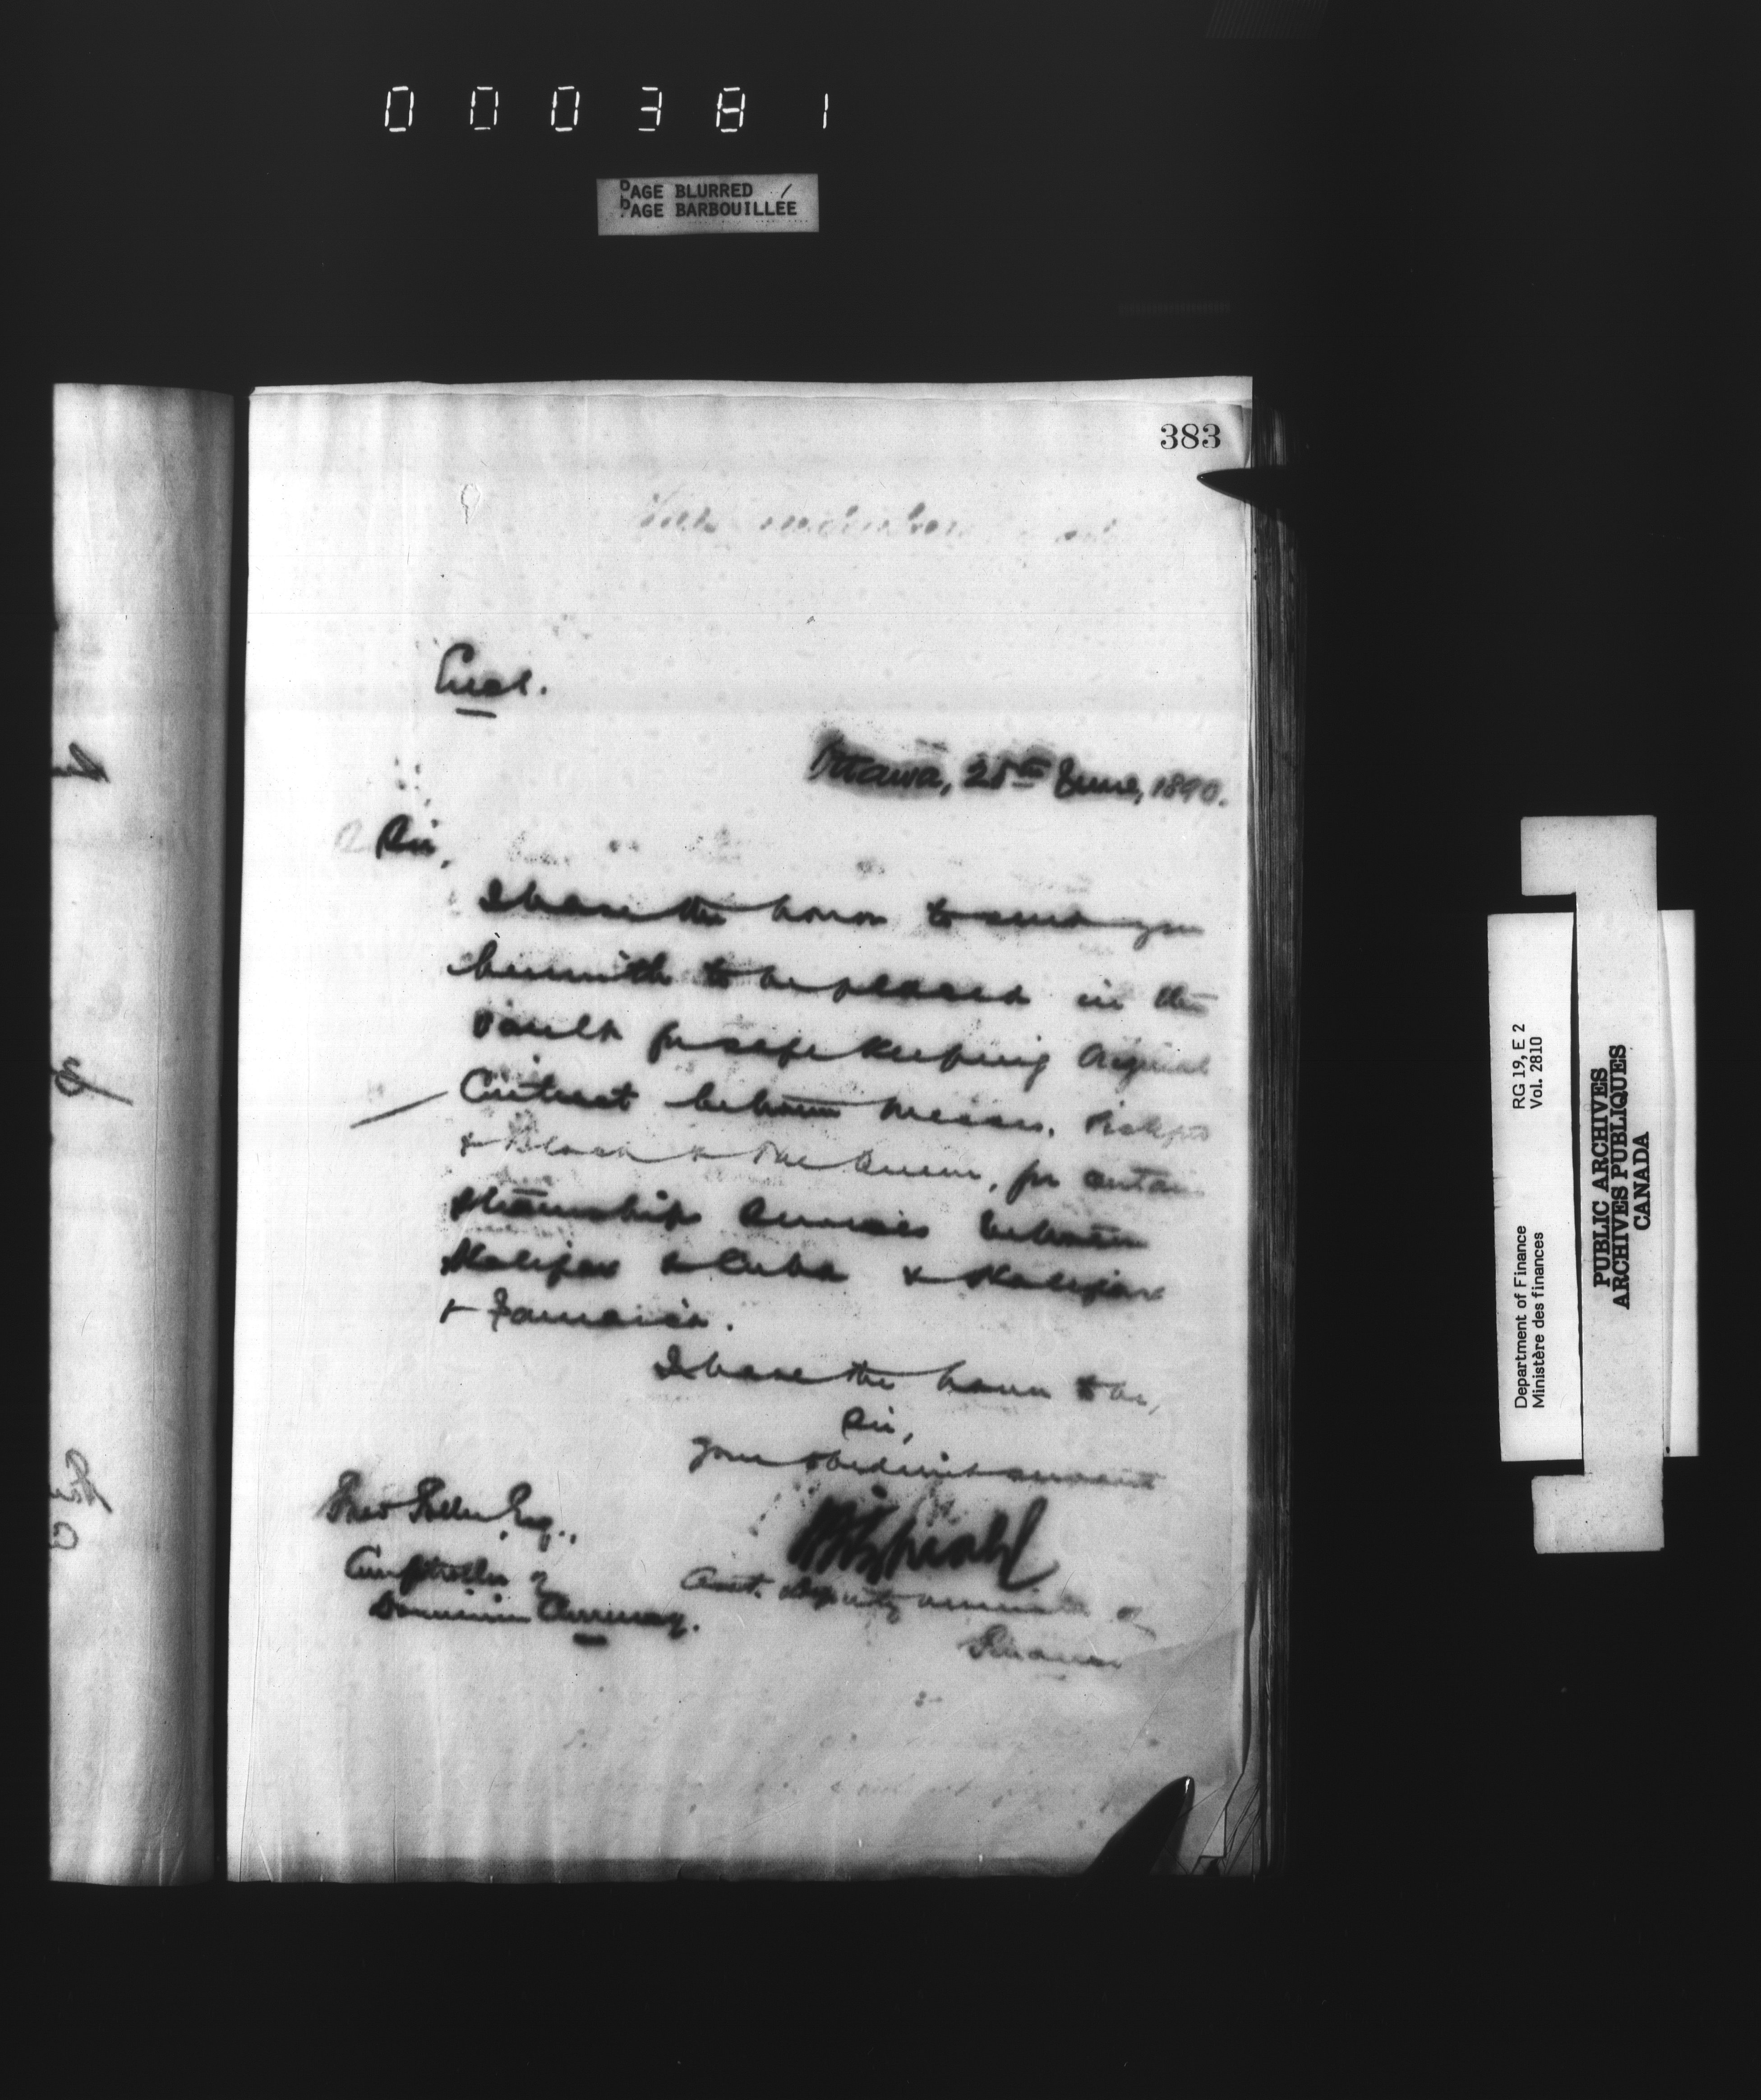 000381
PAGE BLURRED
PAGE BARBOUILLÉE
383
Encl.
Ottawa, 25th June, 1890.
Sir,
I have the honor to send you
herewith to be placed in the
vault for safe keeping original
Contract between Messrs. Pickford
& Black & The Queen, for certain
steamship services between
Halifax & Cuba & Halifax
& Jamaica.
I have the honor to be,
Sir,
Your obedient servant
Asst. Deputy Minister of
Finance
Fred Toller, Esq.,
Comptroller of
Dominion Currency.
RG 19, E 2
Vol. 2810
Department of Finance
Ministère des finances
PUBLIC ARCHIVES
ARCHIVES PUBLIQUES
CANADA